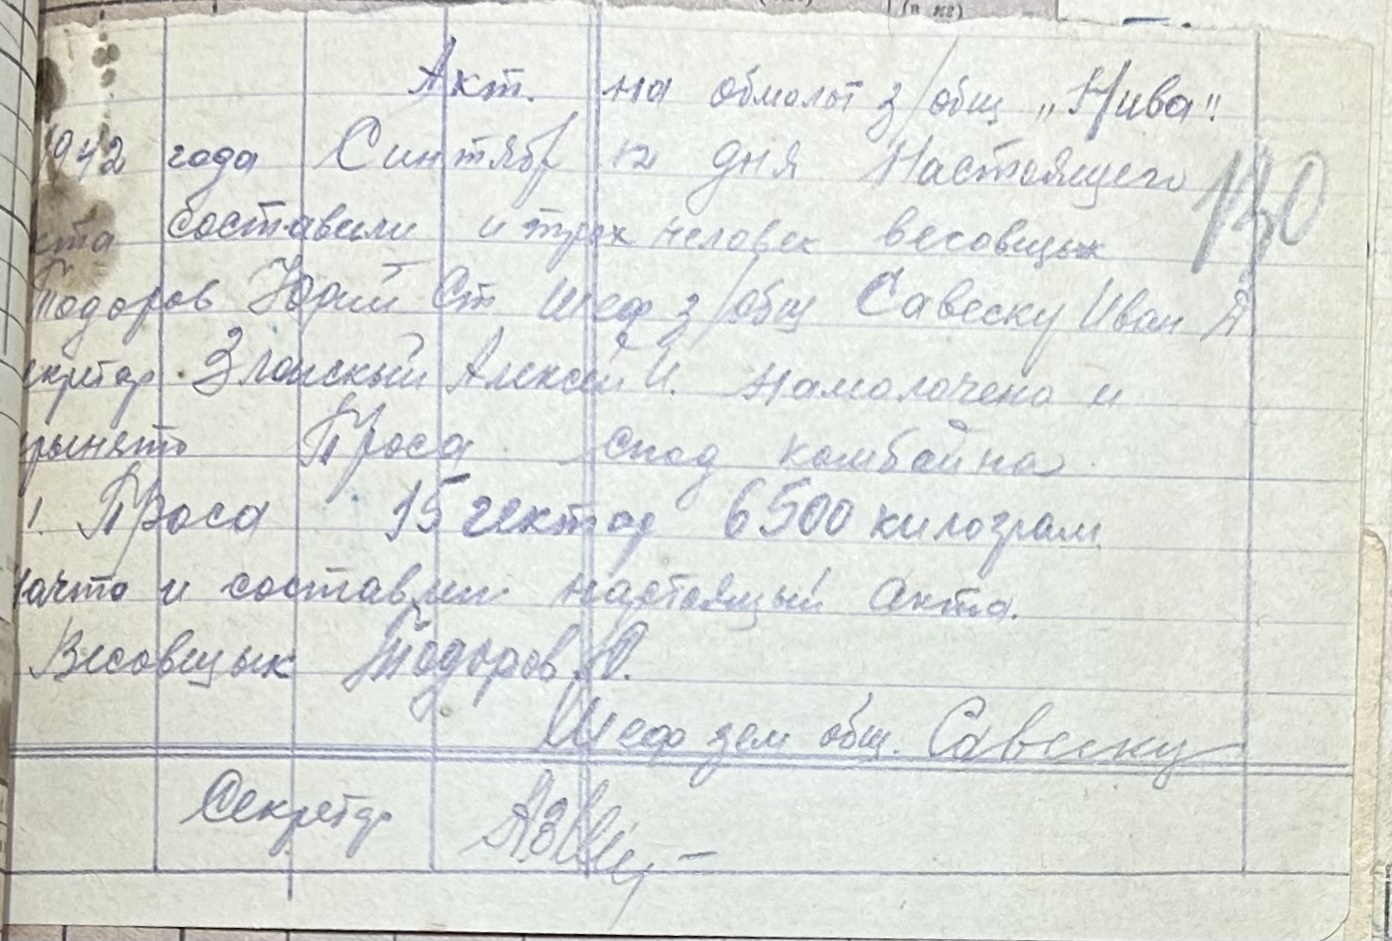 (в кг)
Акт. на обмолот з/общ „Нива"
1942 года Синтябр 12 дня Настоящего
кта составили и трех человек весовщык
Тодоров Юрий Ст Шеф з/общ Савеску Иван Я
екретар Алексей И. намолочено и
рынято Проса спод комбайна
1. Проса 15 гектар 6500 килограм
начто и составили настоящый акта.
Весовщык Тодоров Ю.
Шеф зем общ. Савеску
Секретар
130